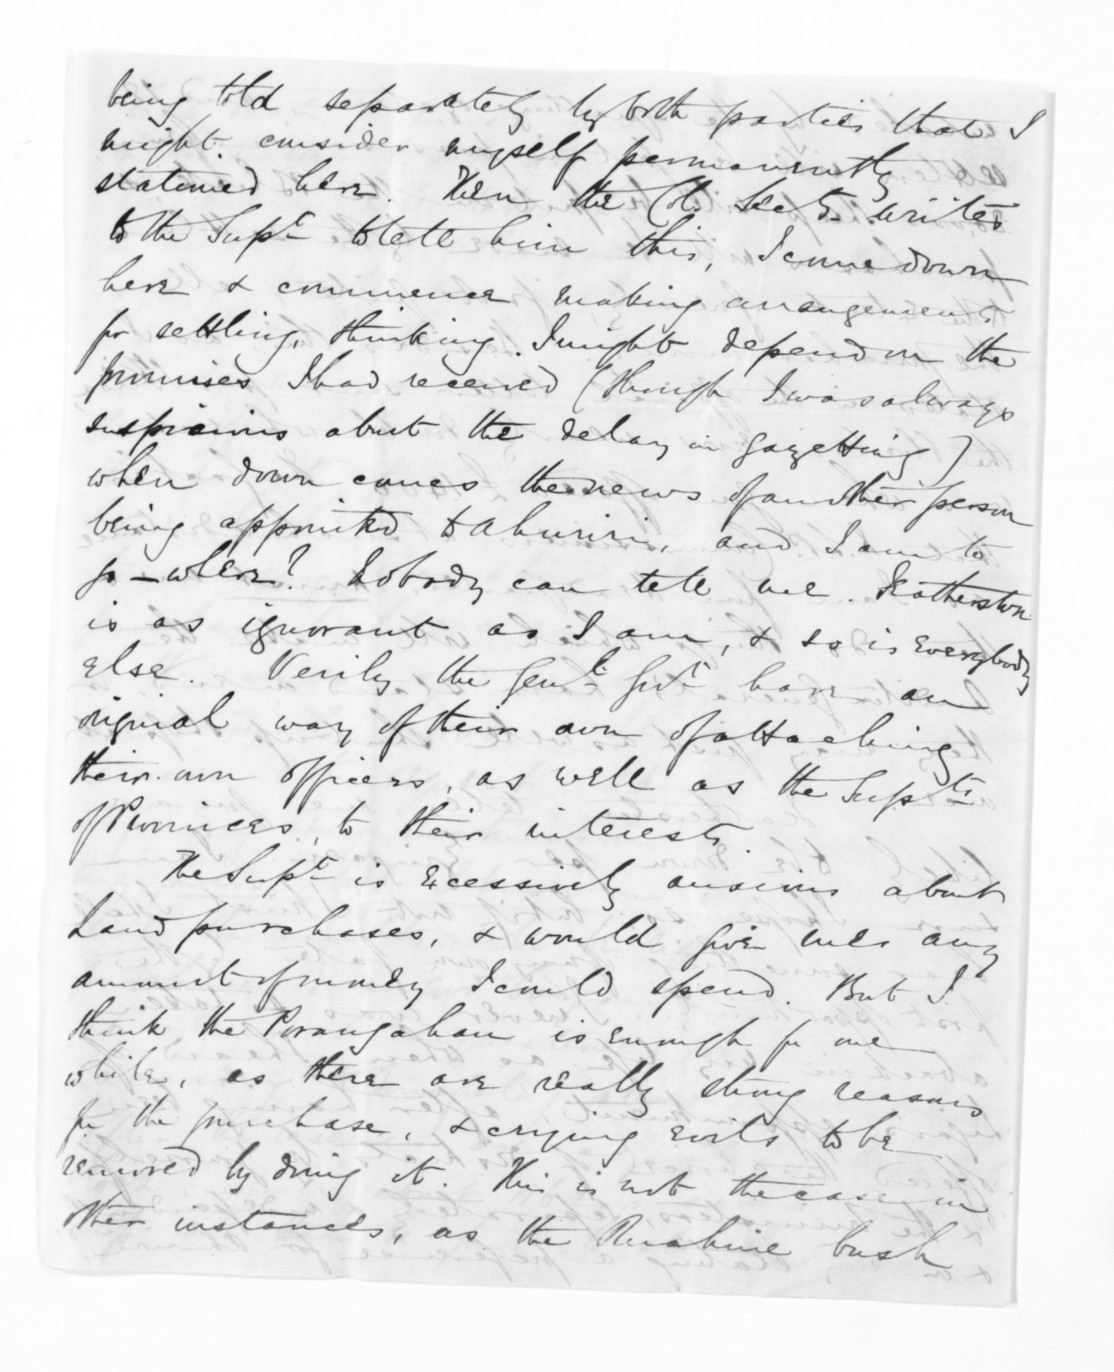 being told separately by both parties that I
might consider myself permanently
stationed here. Then the Col. Secty. writes
to the Supt. to tell him this, I come down
here & commence making arrangements
for settling, thinking I might depend on the
promises I had received (though I was always
suspicious about the delay in gazetting)
when down comes the news of another person
being appointed to Ahuriri, and I am to
go - where? Nobody can tell me. Featherston
is as ignorant as I am, & so is everybody
else. Verily the Genl. Govt. have an
original way of their own of attaching
their own officers, as well as the Supts.
of Provinces, to their interests.
The Supt. is excessively anxious about
Land purchases, & would give me any
amount of money I could spend. But I
think the Porangahau is enough for one
while, as there are really strong reasons
for the purchase, & crying evils to be
removed by doing it. This is not the case in
other instances, as the Ruahine bush